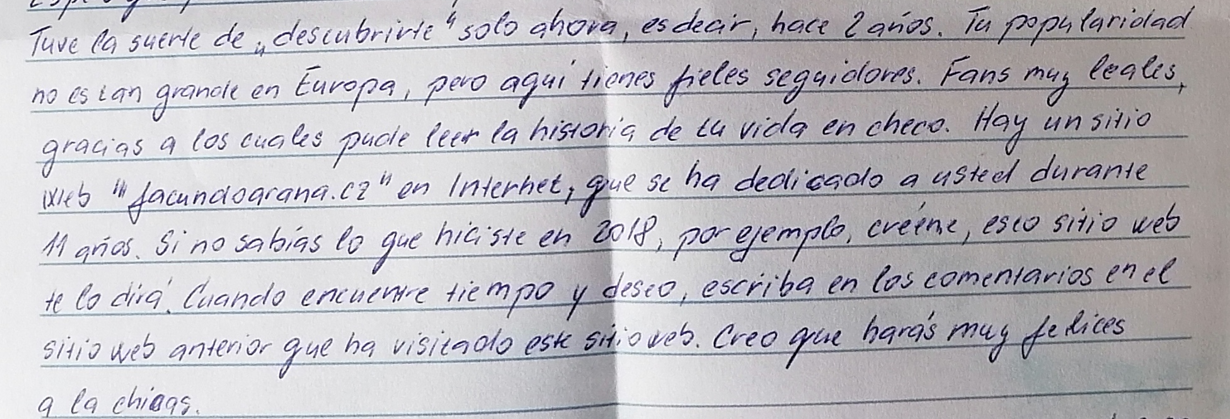 Tuve la suerte de „descubrirte" solo ahora, es decir, hace 2 años. Tu popularidad
no es tan grande en Europa, pero aquí tienes fieles seguidores. Fans muy leales,
gracias a los cuales pude leer la historia de tu vida en checo. Hay un sitio
web "facundoarana.cz" en Internet, que se ha dedicado a usted durante
11 años. Si no sabías lo que hiciste en 2018, por ejemplo, créeme, esto sitio web
te lo dirá. Cuando encuentre tiempo y deseo, escriba en los comentarios en el
sitio web anterior que ha visitado este sitio web. Creo que harás muy felices
a la chicas.